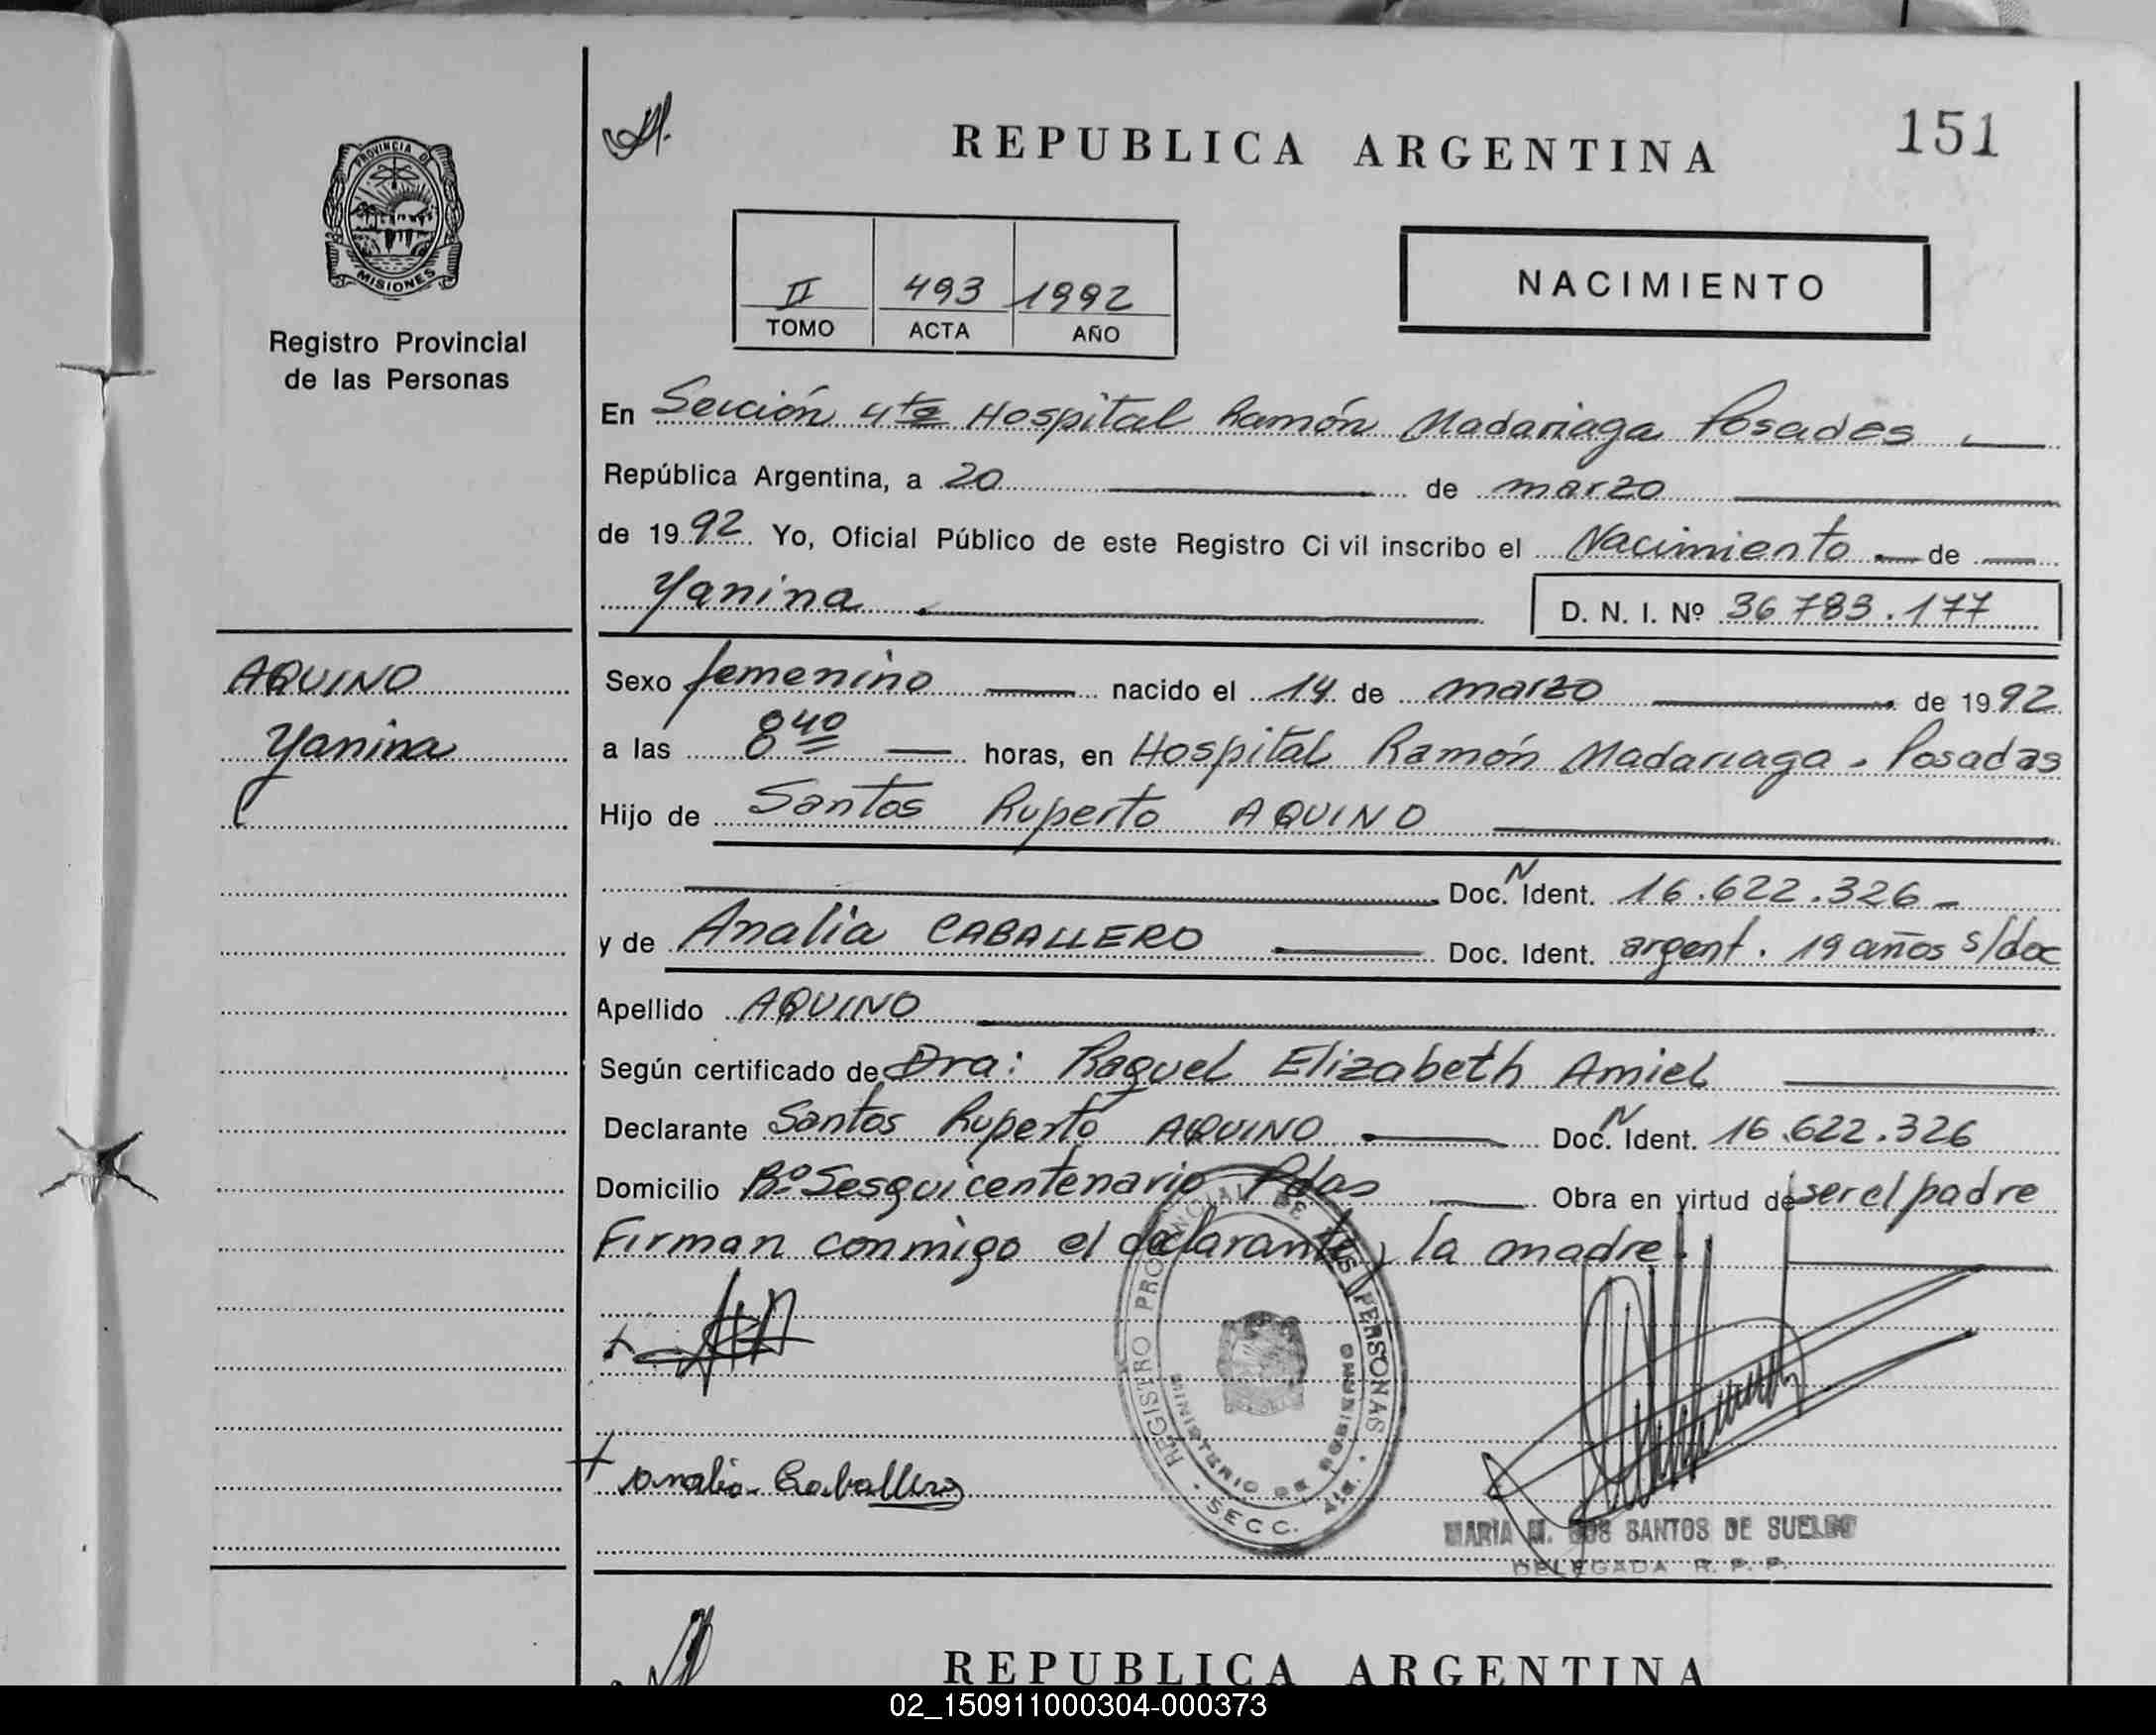 REPUBLICA ARGENTINA
151
PROVINCIA DE
MISIONES
Registro Provincial
de las Personas
II 493 1992
TOMO ACTA AÑO
NACIMIENTO
En Sección 4ta Hospital Ramón Madariaga Posadas
República Argentina, a 20 de marzo
de 1992 Yo, Oficial Público de este Registro Civil inscribo el Nacimiento de
Yanina
D. N. I. Nº 36 783.177
AQUINO
Yanina
Sexo femenino nacido el 14 de marzo de 1992
a las 8 40 horas, en Hospital Ramón Madariaga. Posadas
Hijo de Santos Ruperto AQUINO
Doc. N Ident. 16.622.326
y de Analia CABALLERO Doc. Ident. argent. 19 años s/doc
Apellido AQUINO
Según certificado de Dra: Raquel Elizabeth Amiel
Declarante Santos Ruperto AQUINO Doc. N Ident. 16.622.326
Domicilio Bº Sesquicentenario Pdas Obra en virtud de ser el padre
Firman conmigo el declarante y la madre.
Analia Caballero
REGISTRO PROVINCIAL DE LAS PERSONAS
MINISTERIO DE GOBIERNO
SECC. 4ta
MARIA M. DOS SANTOS DE SUELDO
DELEGADA R. P. P.
REPUBLICA ARGENTINA
02_150911000304-000373